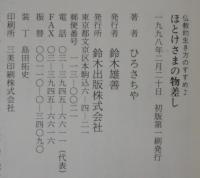 仏教的生き方のすすめ♪
ほとけさまの物差し
一九九八年二月二十日　初版第一刷発行
著者　ひろさちや
発行者　鈴木雄善
発行所　鈴木出版株式会社
東京都文京区本駒込六－四－二一
郵便番号　一一三－〇〇二一
電話　〇三－三九四五－六六一一（代表）
FAX　〇三－三九四五－六六一六
振替　〇〇一一〇－〇－三四〇九〇
装丁　島田拓史
印刷所　三美印刷株式会社